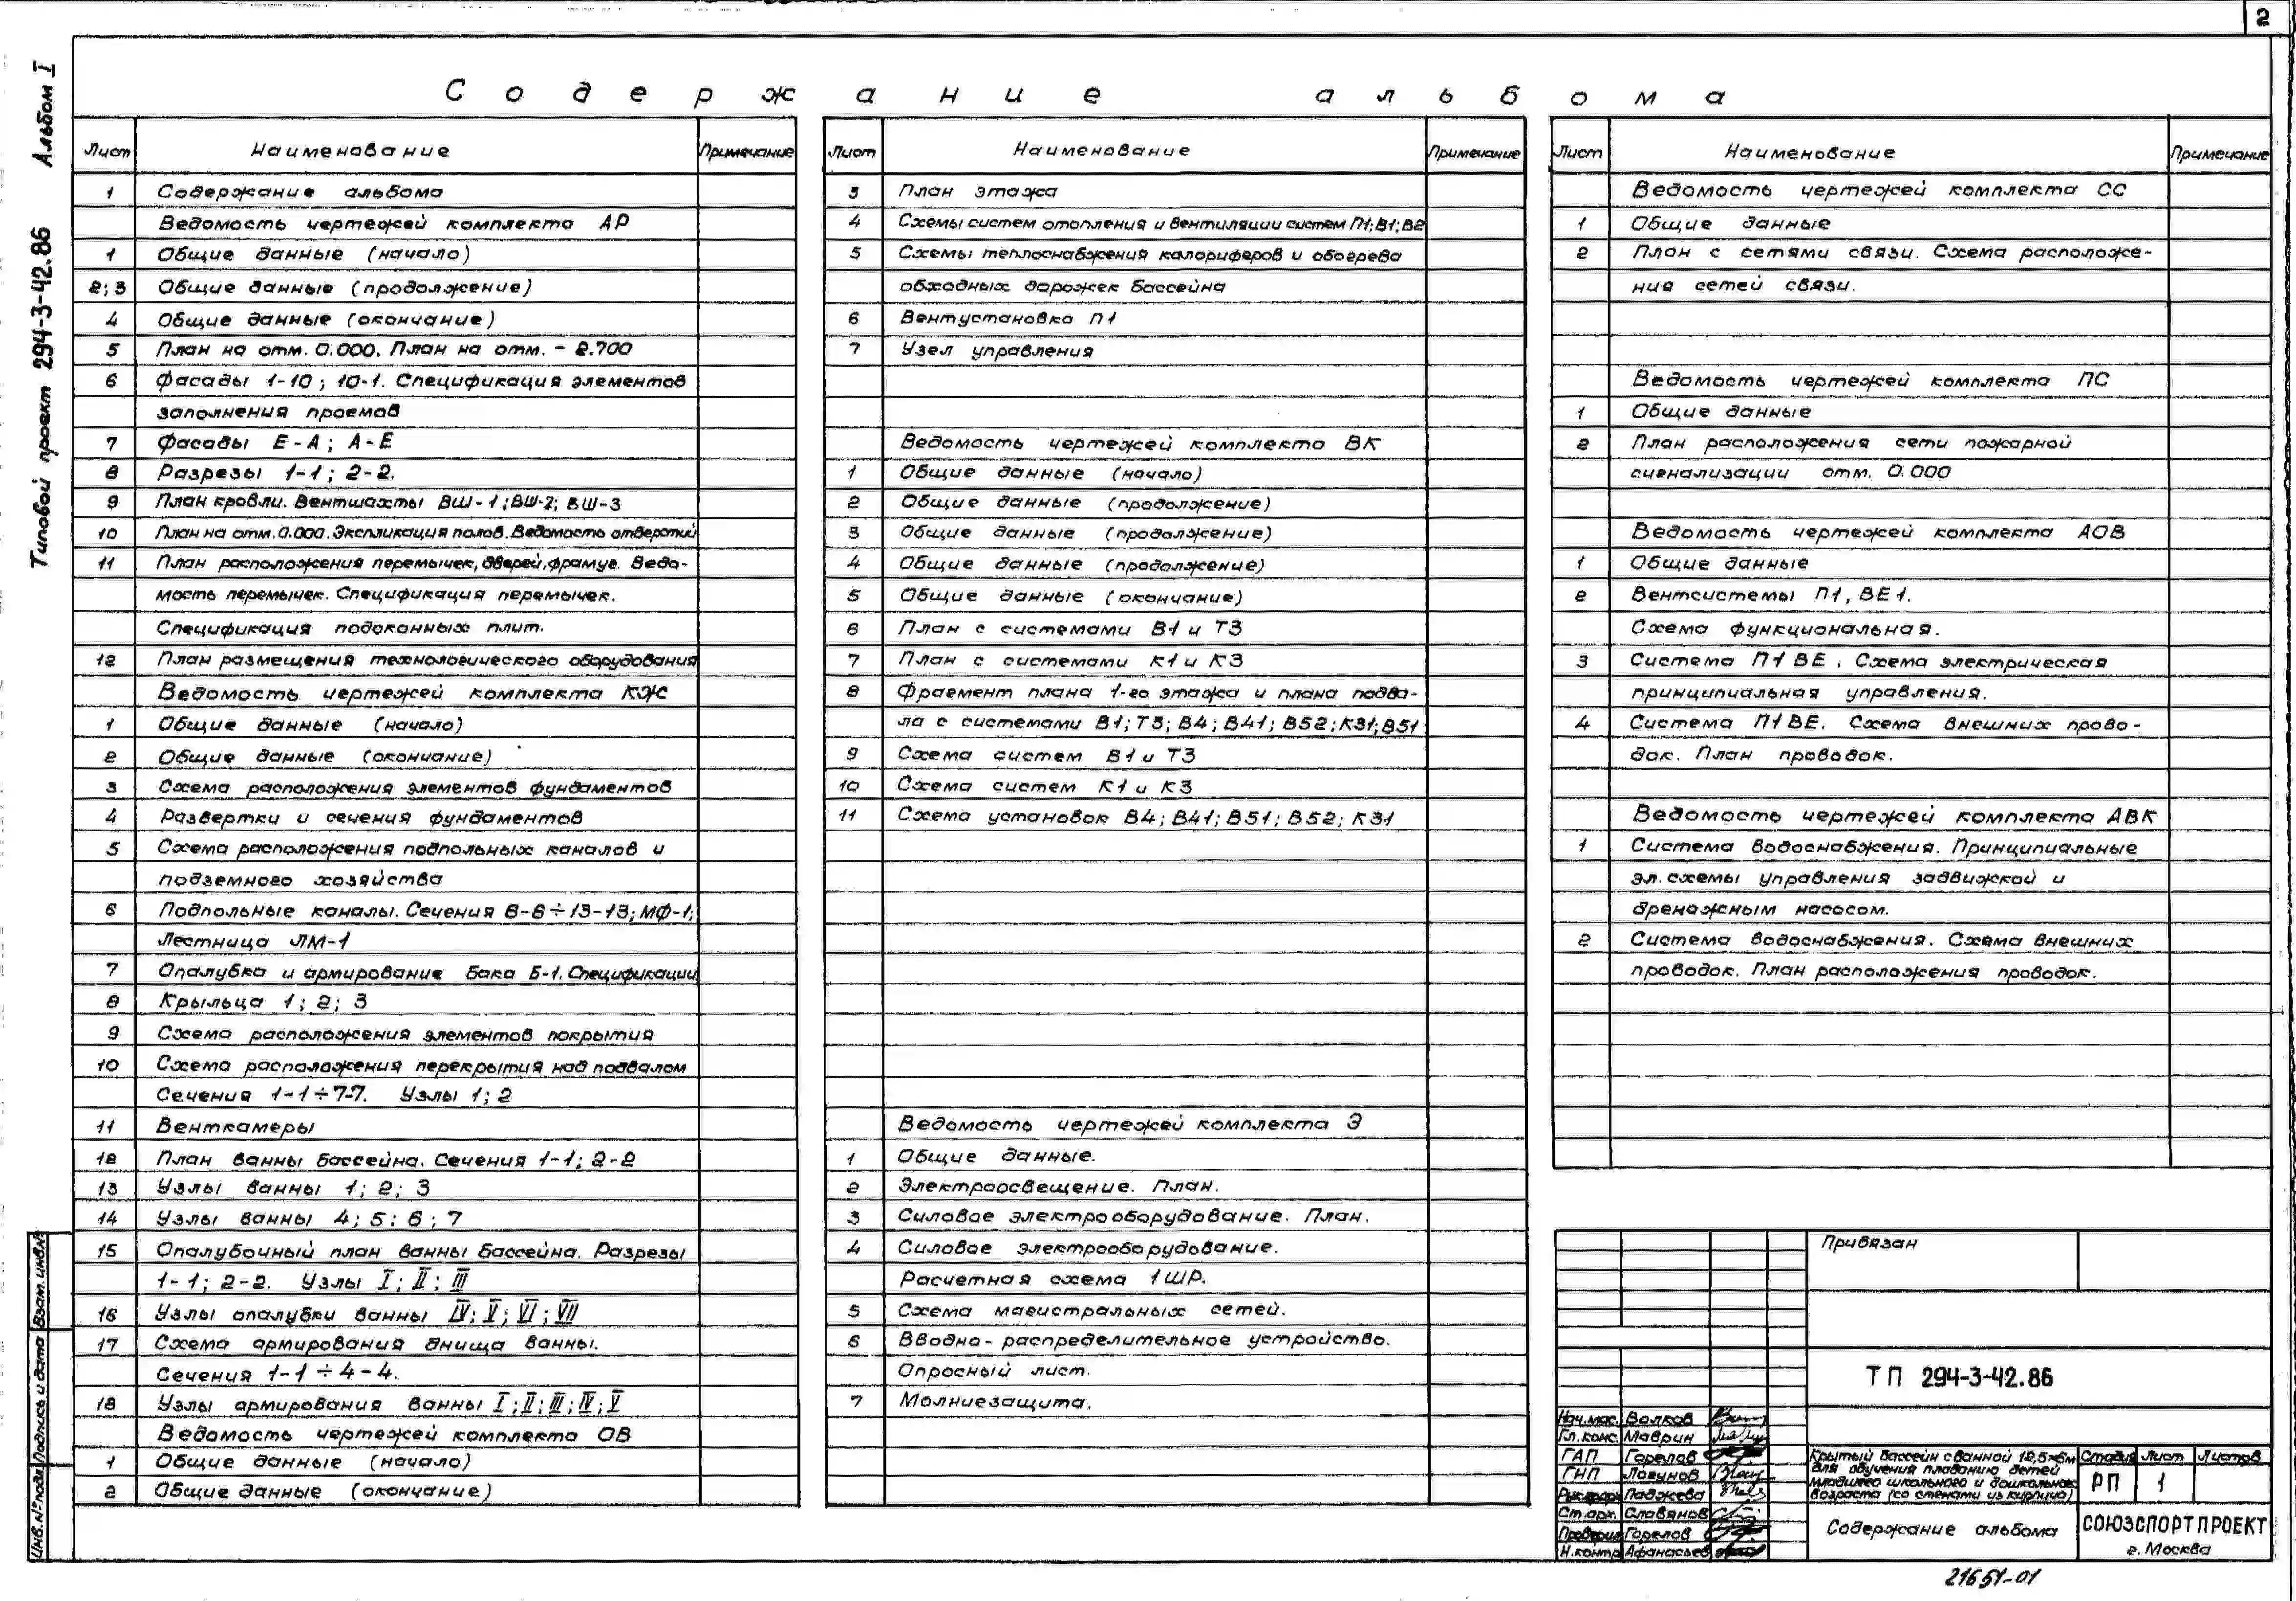 2
Типовой проект 294-3-42.86 Альбом I
Содержание альбома
Лист Наименование Примечание
1 Содержание альбома
Ведомость чертежей комплекта АР
1 Общие данные (начало)
2; 3 Общие данные (продолжение)
4 Общие данные (окончание)
5 План на отм. 0.000. План на отм. - 2.700
6 Фасады 1-10; 10-1. Спецификация элементов
заполнения проемов
7 Фасады Е-А; А-Е
8 Разрезы 1-1; 2-2.
9 План кровли. Вентшахты ВШ-1; ВШ-2; ВШ-3
10 План на отм. 0.000. Экспликация полов. Ведомость отверстий
11 План расположения перемычек, дверей, фрамуг. Ведо-
мость перемычек. Спецификация перемычек.
Спецификация подоконных плит.
12 План размещения технологического оборудования
Ведомость чертежей комплекта КЖ
1 Общие данные (начало)
2 Общие данные (окончание)
3 Схема расположения элементов фундаментов
4 Развертки и сечения фундаментов
5 Схема расположения подпольных каналов и
подземного хозяйства
6 Подпольные каналы. Сечения 6-6÷13-13; МФ-1;
Лестница ЛМ-1
7 Опалубка и армирование бака Б-1. Спецификации
8 Крыльца 1; 2; 3
9 Схема расположения элементов покрытия
10 Схема расположения перекрытия над подвалом
Сечения 1-1÷7-7. Узлы 1; 2
11 Венткамеры
12 План ванны бассейна. Сечения 1-1; 2-2
13 Узлы ванны 1; 2; 3
14 Узлы ванны 4; 5; 6; 7
15 Опалубочный план ванны бассейна. Разрезы
1-1; 2-2. Узлы I; II; III
16 Узлы опалубки ванны IV; V; VI; VII
17 Схема армирования днища ванны.
Сечения 1-1÷4-4.
18 Узлы армирования ванны I; II; III; IV; V
Ведомость чертежей комплекта ОВ
1 Общие данные (начало)
2 Общие данные (окончание)
Лист Наименование Примечание
3 План этажа
4 Схемы систем отопления и вентиляции систем П1; В1; В2
5 Схемы теплоснабжения калориферов и обогрева
обходных дорожек бассейна
6 Вентустановка П1
7 Узел управления
Ведомость чертежей комплекта ВК
1 Общие данные (начало)
2 Общие данные (продолжение)
3 Общие данные (продолжение)
4 Общие данные (продолжение)
5 Общие данные (окончание)
6 План с системами В1 и Т3
7 План с системами К1 и К3
8 Фрагмент плана 1-го этажа и плана подва-
ла с системами В1; Т3; В4; В41; В52; К31; В51
9 Схема систем В1 и Т3
10 Схема систем К1 и К3
11 Схема установок В4; В41; В51; В52; К31
Ведомость чертежей комплекта Э
1 Общие данные.
2 Электроосвещение. План.
3 Силовое электрооборудование. План.
4 Силовое электрооборудование.
Расчетная схема 1ШР.
5 Схема магистральных сетей.
6 Вводно-распределительное устройство.
Опросный лист.
7 Молниезащита.
Лист Наименование Примечание
Ведомость чертежей комплекта СС
1 Общие данные
2 План с сетями связи. Схема расположе-
ния сетей связи.
Ведомость чертежей комплекта ПС
1 Общие данные
2 План расположения сети пожарной
сигнализации отм. 0.000
Ведомость чертежей комплекта АОВ
1 Общие данные
2 Вентсистемы П1, ВЕ1.
Схема функциональная.
3 Система П1 ВЕ. Схема электрическая
принципиальная управления.
4 Система П1 ВЕ. Схема внешних прово-
док. План проводок.
Ведомость чертежей комплекта АВК
1 Система водоснабжения. Принципиальные
эл. схемы управления задвижкой и
дренажным насосом.
2 Система водоснабжения. Схема внешних
проводок. План расположения проводок.
Инв. № подл. Подпись и дата Взам. инв. №
Привязан
ТП 294-3-42.86
Нач. мас. Волков
Гл. конс. Маврин
ГАП Горелов
ГИП Логунов
Ст. арх. Славянов
Проверил Горелов
Н. контр. Афанасьев
Крытый бассейн с ванной 12,5×6м
для обучения плаванию детей
младшего школьного и дошкольного
возраста (со стенами из кирпича)
Стадия Лист Листов
РП 1
Содержание альбома
СОЮЗСПОРТПРОЕКТ
г. Москва
21651-01